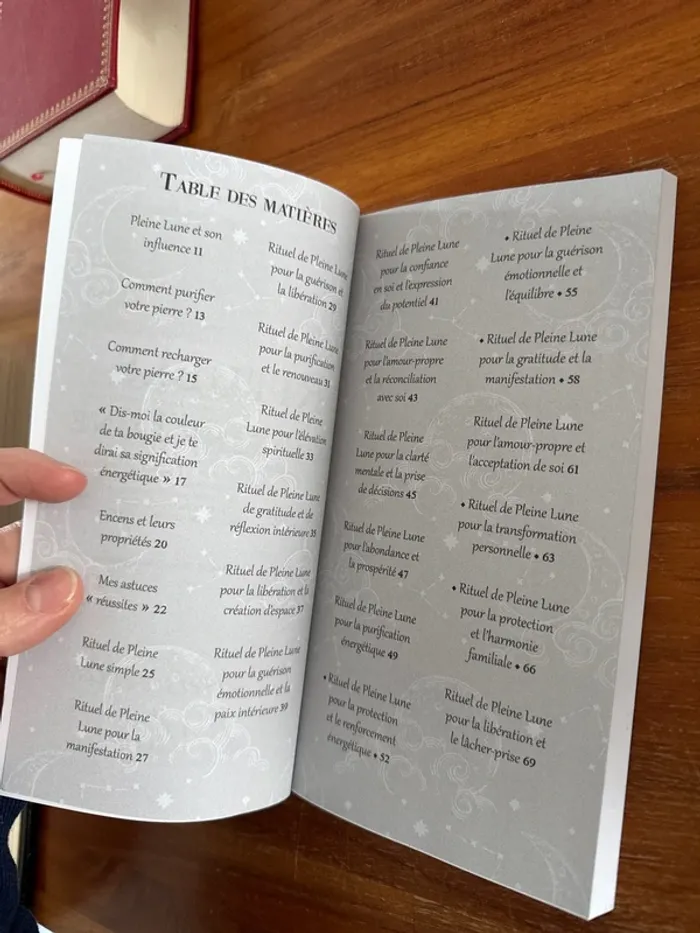 TABLE DES MATIÈRES
Pleine Lune et son
influence 11
Comment purifier
votre pierre ? 13
Comment recharger
votre pierre ? 15
« Dis-moi la couleur
de ta bougie et je te
dirai sa signification
énergétique » 17
Encens et leurs
propriétés 20
Mes astuces
« réussites » 22
Rituel de Pleine
Lune simple 25
Rituel de Pleine
Lune pour la
manifestation 27
Rituel de Pleine Lune
pour la guérison et
la libération 29
Rituel de Pleine Lune
pour la purification
et le renouveau 31
Rituel de Pleine
Lune pour l'élévation
spirituelle 33
Rituel de Pleine Lune
de gratitude et de
réflexion intérieure 35
Rituel de Pleine Lune
pour la libération et la
création d'espace 37
Rituel de Pleine Lune
pour la guérison
émotionnelle et la
paix intérieure 39
Rituel de Pleine Lune
pour la confiance
en soi et l'expression
du potentiel 41
Rituel de Pleine Lune
pour l'amour-propre
et la réconciliation
avec soi 43
Rituel de Pleine
Lune pour la clarté
mentale et la prise
de décisions 45
Rituel de Pleine Lune
pour l'abondance et
la prospérité 47
Rituel de Pleine Lune
pour la purification
énergétique 49
• Rituel de Pleine Lune
pour la protection
et le renforcement
énergétique • 52
• Rituel de Pleine
Lune pour la guérison
émotionnelle et
l'équilibre • 55
• Rituel de Pleine Lune
pour la gratitude et la
manifestation • 58
Rituel de Pleine Lune
pour l'amour-propre et
l'acceptation de soi 61
• Rituel de Pleine Lune
pour la transformation
personnelle • 63
• Rituel de Pleine Lune
pour la protection
et l'harmonie
familiale • 66
Rituel de Pleine Lune
pour la libération et
le lâcher-prise 69